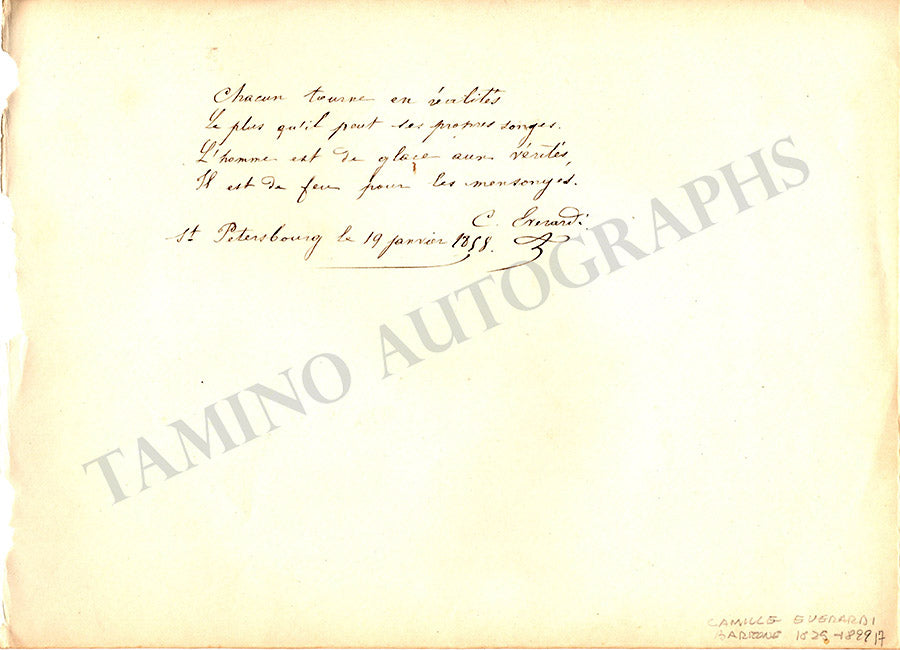 Chacun tourne en réalités
Le plus qu'il peut ses propres songes.
L'homme est de glace aux vérités,
Il est de feu pour les mensonges.
C. Everardi
St Petersbourg le 19 janvier 1858.
TAMINO AUTOGRAPHS
CAMILLE EVERARDI
BARITONE 1825-1899